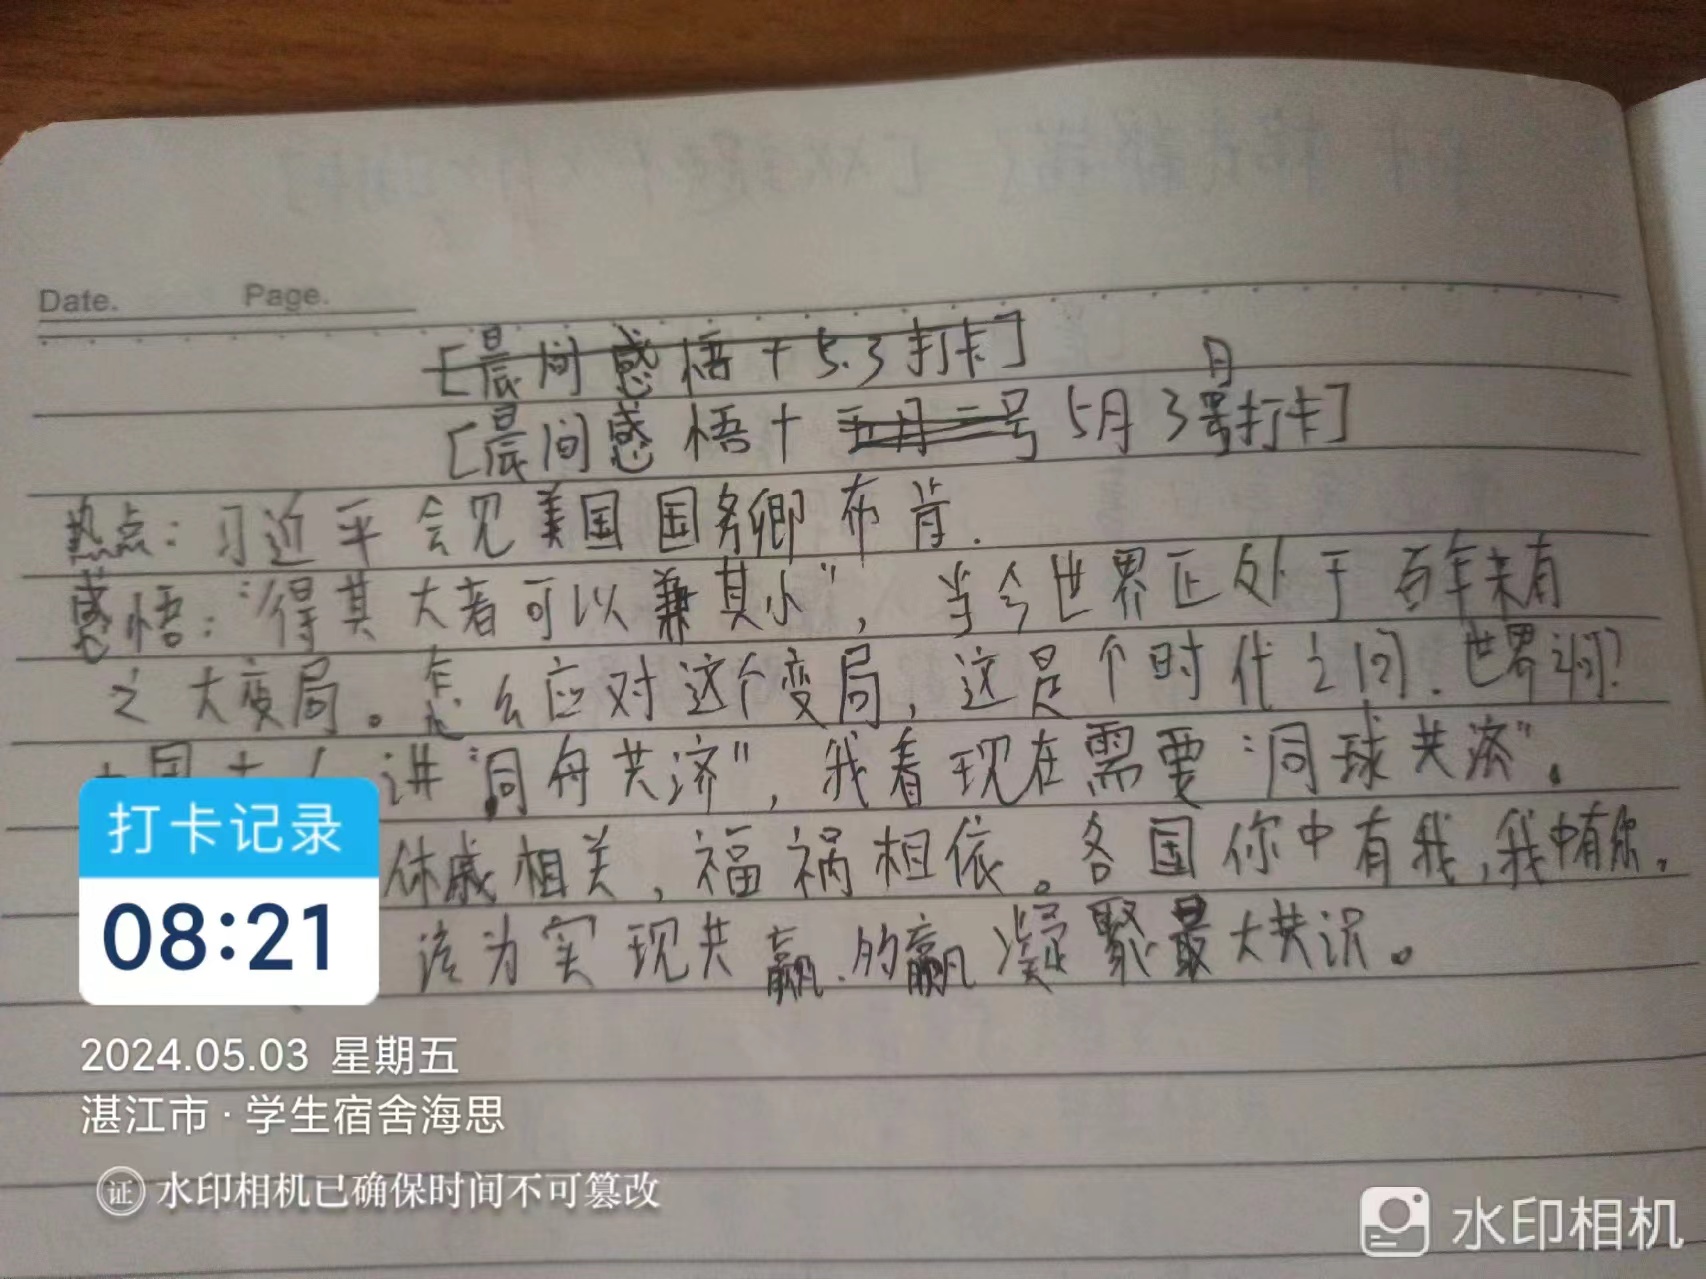 Date. Page.
[晨间感悟+5.3打卡]
月
[晨间感悟+五月二号5月3号打卡]
热点：习近平会见美国国务卿布肯.
感悟："得其大者可以兼其小"，当今世界正处于百年未有
之大变局。怎么应对这个变局，这是个时代之问.世界之问?
讲"同舟共济"，我看现在需要"同球共济"。
休戚相关，福祸相依。各国你中有我，我中有你。
该为实现共赢.的赢凝聚最大共识。
打卡记录
08:21
2024.05.03 星期五
湛江市·学生宿舍海思
证 水印相机已确保时间不可篡改
水印相机